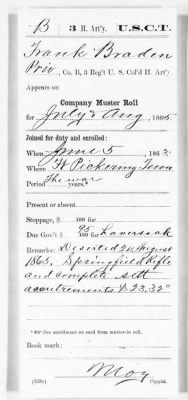 B | 3 H. Art'y. | U.S.C.T.
Frank Braden
Priv, Co. B, 3 Reg't U. S. Col'd H. Art'y.
Appears on
Company Muster Roll
for July & Aug, 1865.
Joined for duty and enrolled:
When June 5, 186
Where Ft Pickering Tenn
Period The war years.*
Present or absent
Stoppage, $ 100 for
Due Gov't $ 95/100 for Haversack
Remarks: Deserted 2nd August
1865. Springfield Rifle
and complete sett
acoutrements $23.32
*See enrollment on card from muster-in roll.
Book mark:
(358c)
Moy
Copyist.